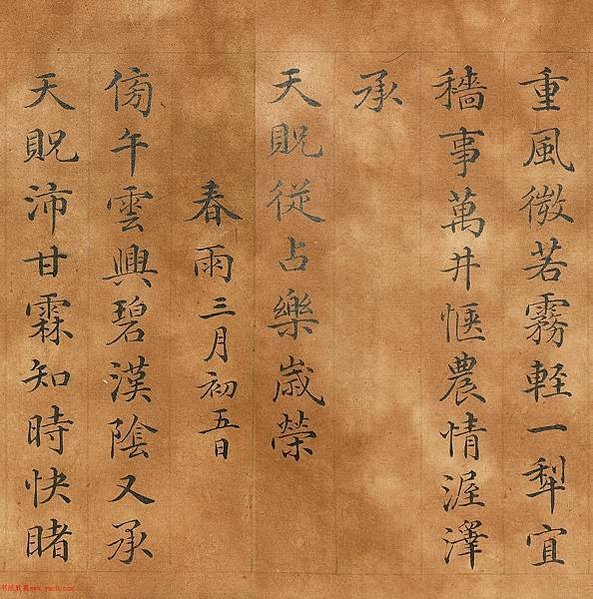 重風微若霧軽一犁宜
穡事萬井愜農情渥澤
承
天貺從占樂歲榮
春雨三月初五日
傍午雲興碧漢陰又承
天貺沛甘霖知時快睹